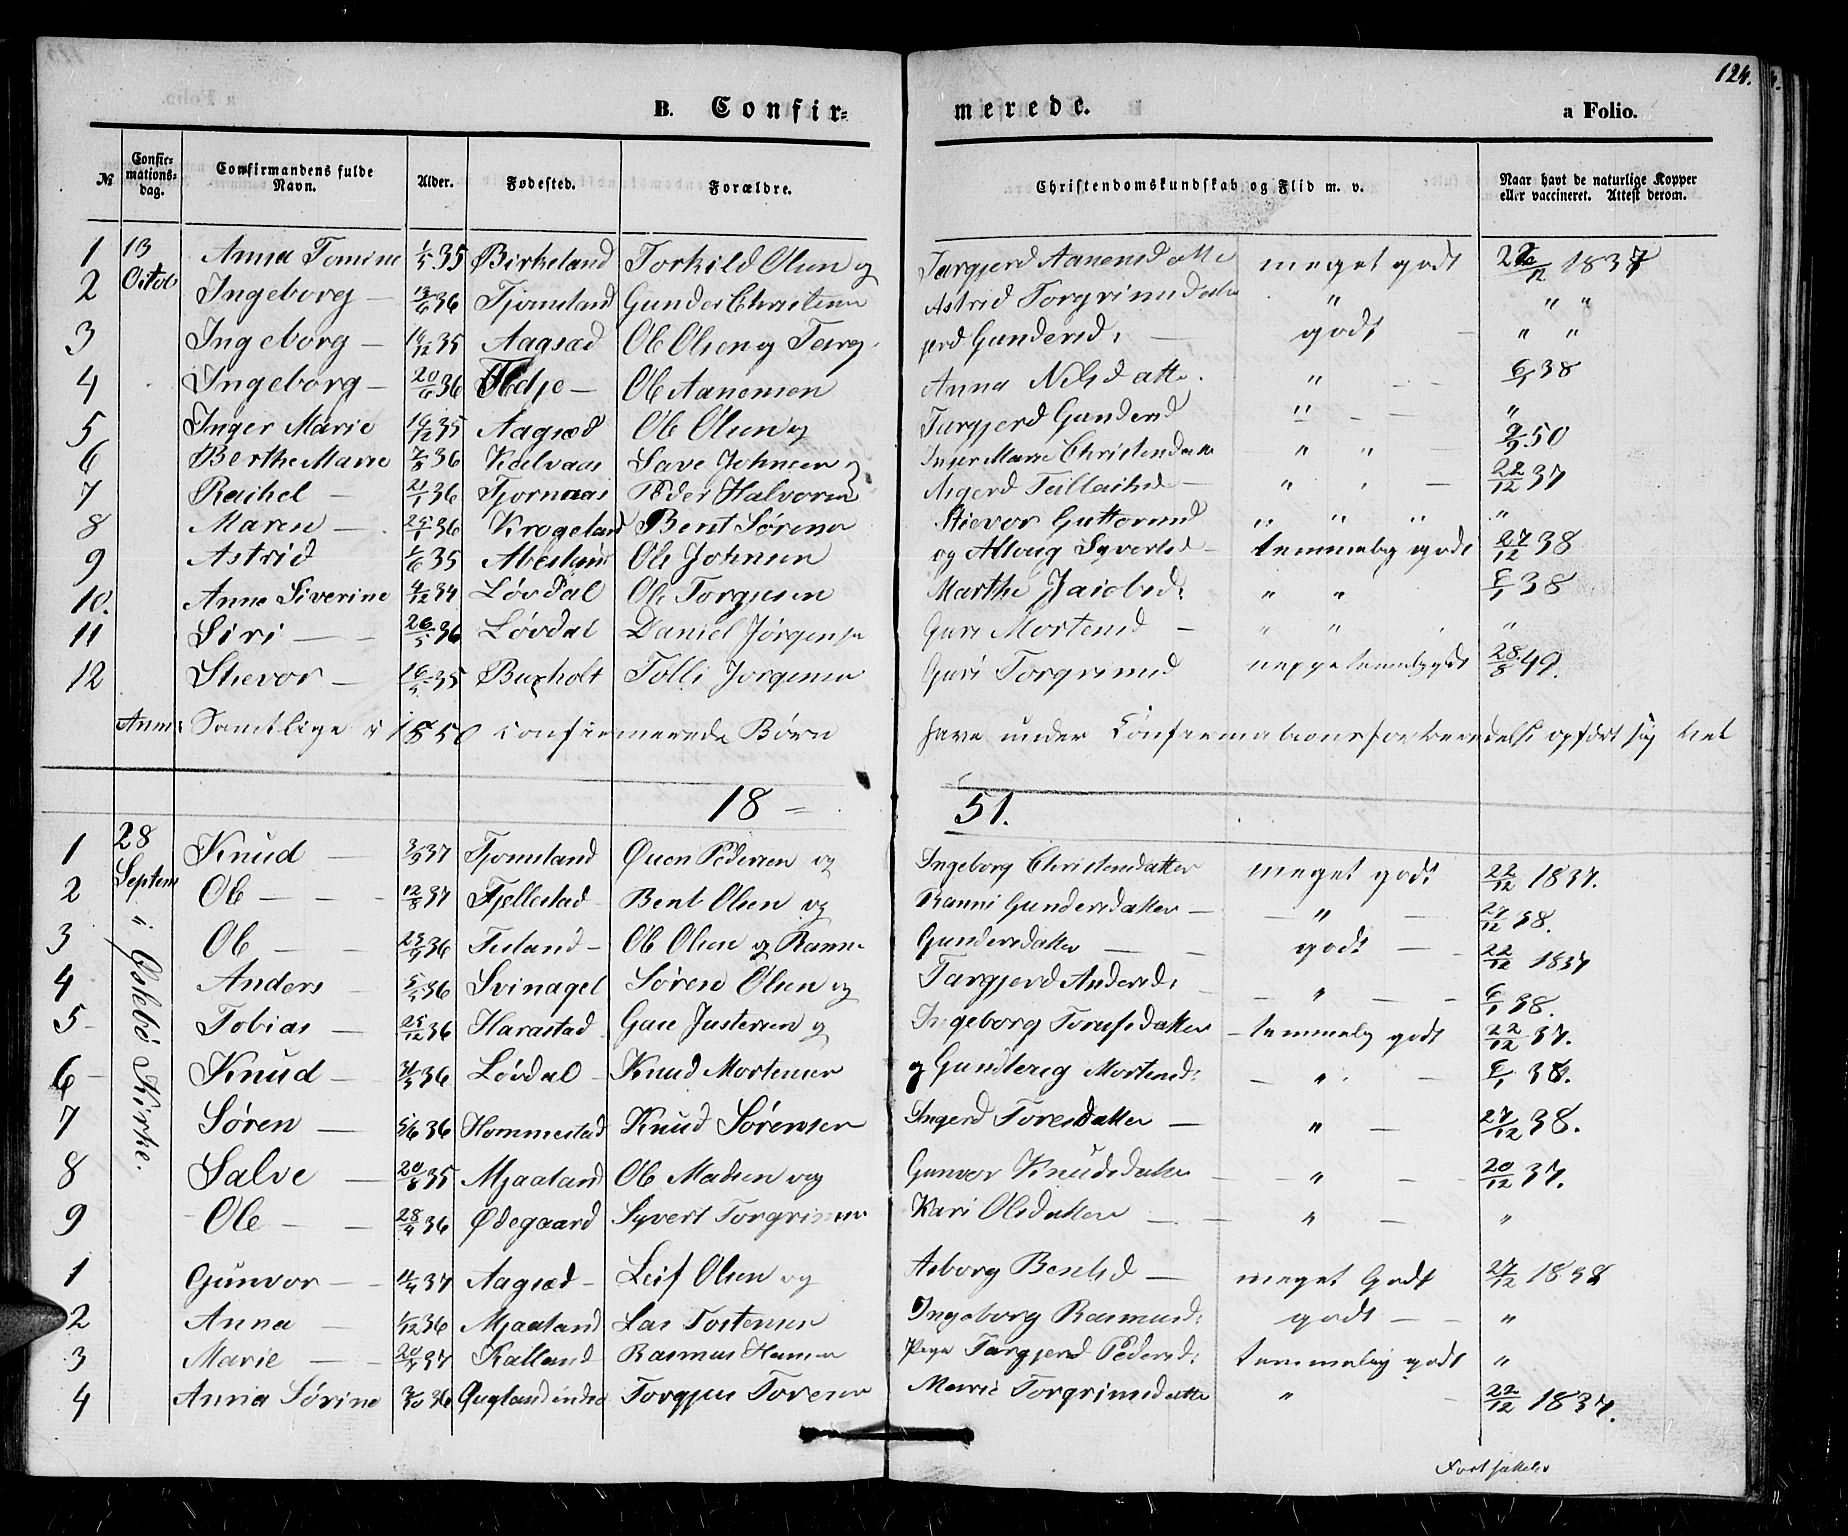 124.
B. Confir=
merede.
a Folio.
№ Confirmationsdag. Confirmandens fulde Navn. Alder. Fødested. Forældre. Christendomskundskab og Flid m. v. Naar havt de naturlige Kopper eller vaccineret. Attest derom.
1 13 Anna Tomine 1/5 35 Birkeland Torkild Olsen og Targjerd Aanensdatte meget godt 22/12 1837
2 Octob Ingeborg — 13/6 36 Tjomsland Gunder Christensen Astrid Torgrimsdatter " " "
3 Ingeborg — 35 Aagsæd Ole Olsen og Targ- jerd Gundersd: godt — " "
4 Ingeborg — 20/6 36 Ole Aanensen Anna Nilsdatte. " - - 6/1 38
5 Inger Marie 35 Aagsæd Ole Olsen og Targjerd Gundersd " - - "
6 Berthe Marie 7/8 36 Save Johnsen og Inger Marie Christensdatte " " 9/9 50
7 Rachel — 21/1 36 Peder Halvorsen Asgerd " - 22/12 37
8 Maren — 36 Krogeland Bent Sørensen Stievor Guttormsd " " " "
9 Astrid 1/6 35 Ole Johnsen og Syvertsd - temmelig godt 27/12 38
10. Anne Siverine 4/12 34 Løvdal Ole Torgiesen Marthe Jacobsd: " " 6/1 38
11 Siri — - 26/5 36 Løvdal Daniel Jørgensen Guri Mortensd — " " "
12 Stievor — 16/5 35 Buxholt Tolli Jørgensen Guri Torgrimsd neppe temmelig godt 28/8 49.
Anm: Samtlige i 1850 confirmerede Børn have under Confirmationsforberedelse opført sig vel
18 = 51.
1 28 Knud — 3/9 37 Tjomsland Ouen Pedersen og Ingeborg Christensdatter meget godt 22/12 1837.
2 Septem Ole — - - 12/8 37 Fjellestad - Bent Olsen og Ranni Gundersdatter — — " — 27/12 38.
3 i Øslebø Kirke. Ole — — 23/9 36 — Ole Olsen og Ranni Gundersdatter — godt — 22/12 1837
4 Anders — 5/5 36 Svinagel Søren Olsen og Targjerd Andersd: — " — - 6/1 38.
5 Tobias — 25/12 36 Harastad Justesen og Ingeborg — temmelig godt 22/12 37.
6 Knud — 36 Løvdal - Knud Mortensen og Mortensd: — " — 6/1 38.
7 Søren — 5/6 36 Hommestad Knud Sørensen Ingerd Toresdatter — " — 27/12 38.
8 Salve — 20/8 35 Mjaaland Ole Madsen og Gunvor Knudsdatter — " — 20/12 37.
9 Ole — — 28/4 36 Ødegaard Syvert Torgrimsen Kari Olsdatter — — " — "
1 Gunvor — - 37 Aagsæd - Leif Olsen og Asborg Bentsd — meget Godt 27/12 1838
2 Anna — 1/12 36 Mjaaland Lars Tostensen Ingeborg Rasmusd: godt — - "
3 Marie — — 37 Kalland Rasmus Hansen Targjerd Pedersd: temmelig godt "
4 Anna Sørine 36 Torgjus Toresen Marie Torgrimsdatte " - 22/12 1837.
Fortsættes